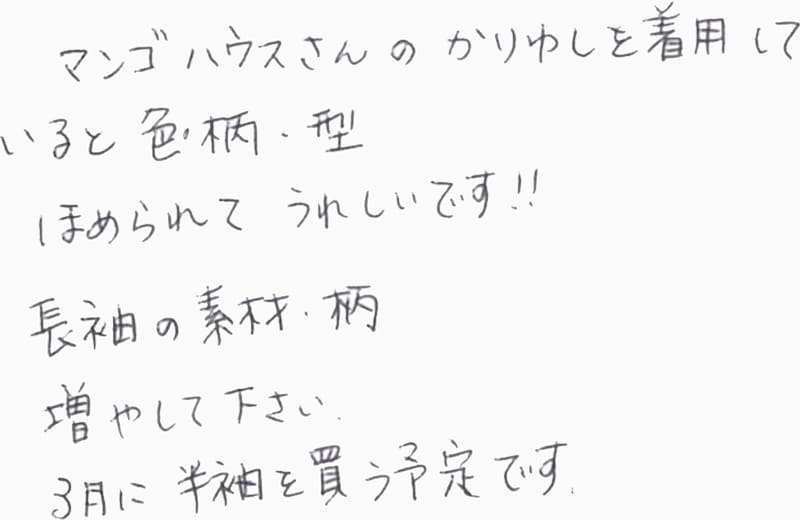 マンゴハウスさんのかりゆしを着用して
いると色・柄・型
ほめられて うれしいです!!
長袖の素材・柄
増やして下さい.
3月に半袖を買う予定です.